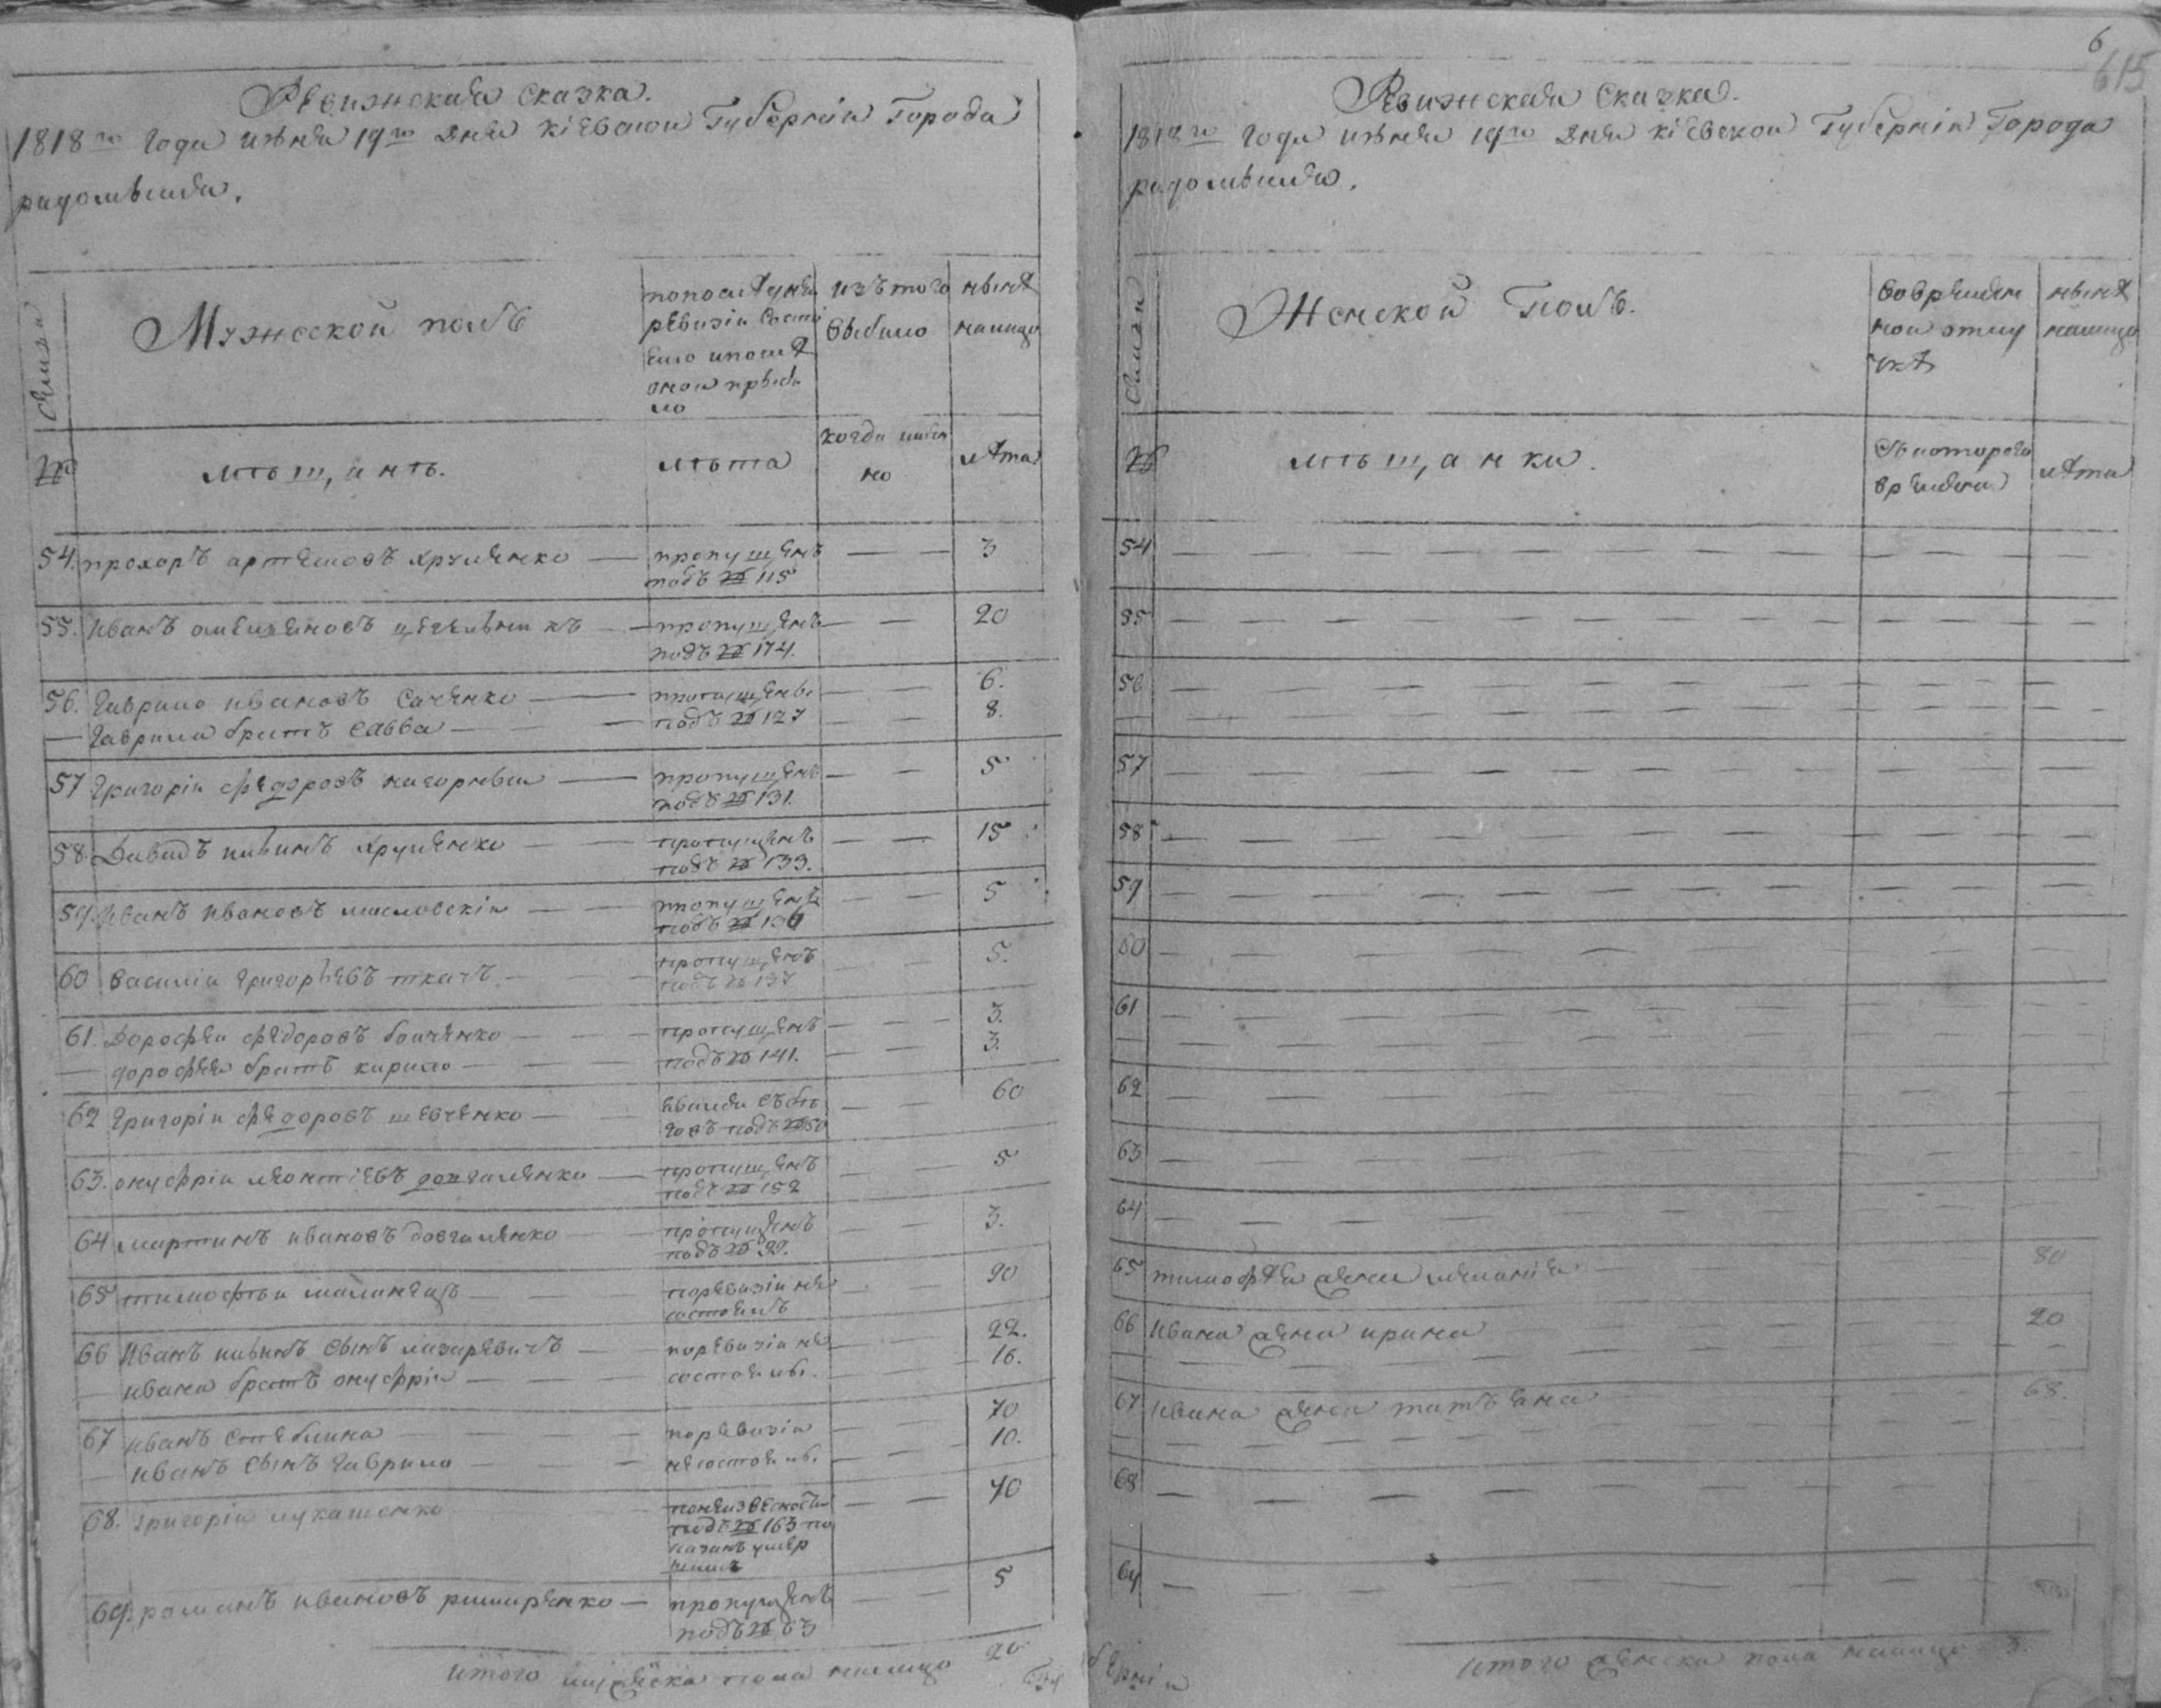 Ревизская Сказка.
1818го Года июня 19го дня киевской Губернии Города
радомысля.
Семьи
Мужеской полъ
попоследней ревизии состояло и после оной прибыло
изъ того выбыло
ныне налицо
№
мѣщанѣ.
лѣта
когда имянно
лѣта
54. прохоръ артемовъ хруленко — пропущенъ — — 3
подъ № 115
55. Иванъ щегельникъ — пропущенъ — — 20
подъ № 174.
56. Гаврило Ивановъ Саченко — пропущены — — 6.
— Гаврила братъ Савва — подъ № 127 — — 8.
57 Григорiи федоровъ нагорныи — пропущенъ — — 5
подъ № 131.
58. Давидъ хруленко — — пропущенъ — — 15
подъ № 133.
59. Иванъ Ивановъ масловскiи — — пропущенъ — — 5
подъ № 136
60 Василiи Григорьевъ ткачъ — — пропущенъ — — 5.
подъ № 137
61. Дорофеи федоровъ боиченко — — пропущенъ — — 3.
— дорофея братъ кирило — — подъ № 141. — — 3.
62 Григорiи федоровъ шевченко — — 60
подъ № 50
63. онуфрiи леонтiевъ довгаленко — пропущенъ — — 5
подъ № 152
64 мартинъ ивановъ довгаленко — пропущенъ — — 3.
подъ № 99.
65 тимофѣи маланецъ — — поревизiи не — — 90
состоялъ
66 Иванъ сынъ лазаревичъ — поревизiи не — — 22.
— ивана братъ онуфрiи — — состояли. — — 16.
67 иванъ стеблина — — — поревизiи — — 70
— иванъ сынъ гаврило — — несостояли. — — 10.
68. григорiи лукашенко — — 70
подъ № 163 по
казанъ умер
шимъ
69. романъ ивановъ — пропущенъ — — 5
подъ № 63
итого мужеска пола налицо 20
6
615
Ревизская Сказка.
1818го Года июня 19го дня киевской Губернии Города
радомысля.
Семьи
Женской полъ.
Во временной отлучке
ныне налицо
№
мѣщанки.
Съ котораго времени
лѣта
54 — — —
55 — — —
56 — — —
— — —
57 — — —
58 — — —
59 — — —
60 — — —
61 — — —
— — —
62 — — —
63 — — —
64 — — —
65 тимофѣя жена меланiя — — 80
66 Ивана жена ирина — — 20
— — —
67 ивана жена татьяна — — 68.
— — —
68 — — —
69 — — —
итого женска пола налицо 3.